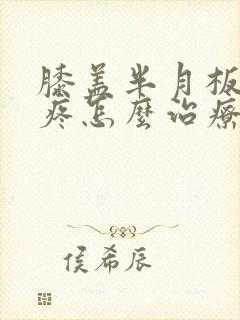 膝盖半月板
疼怎麼治療
侯希辰